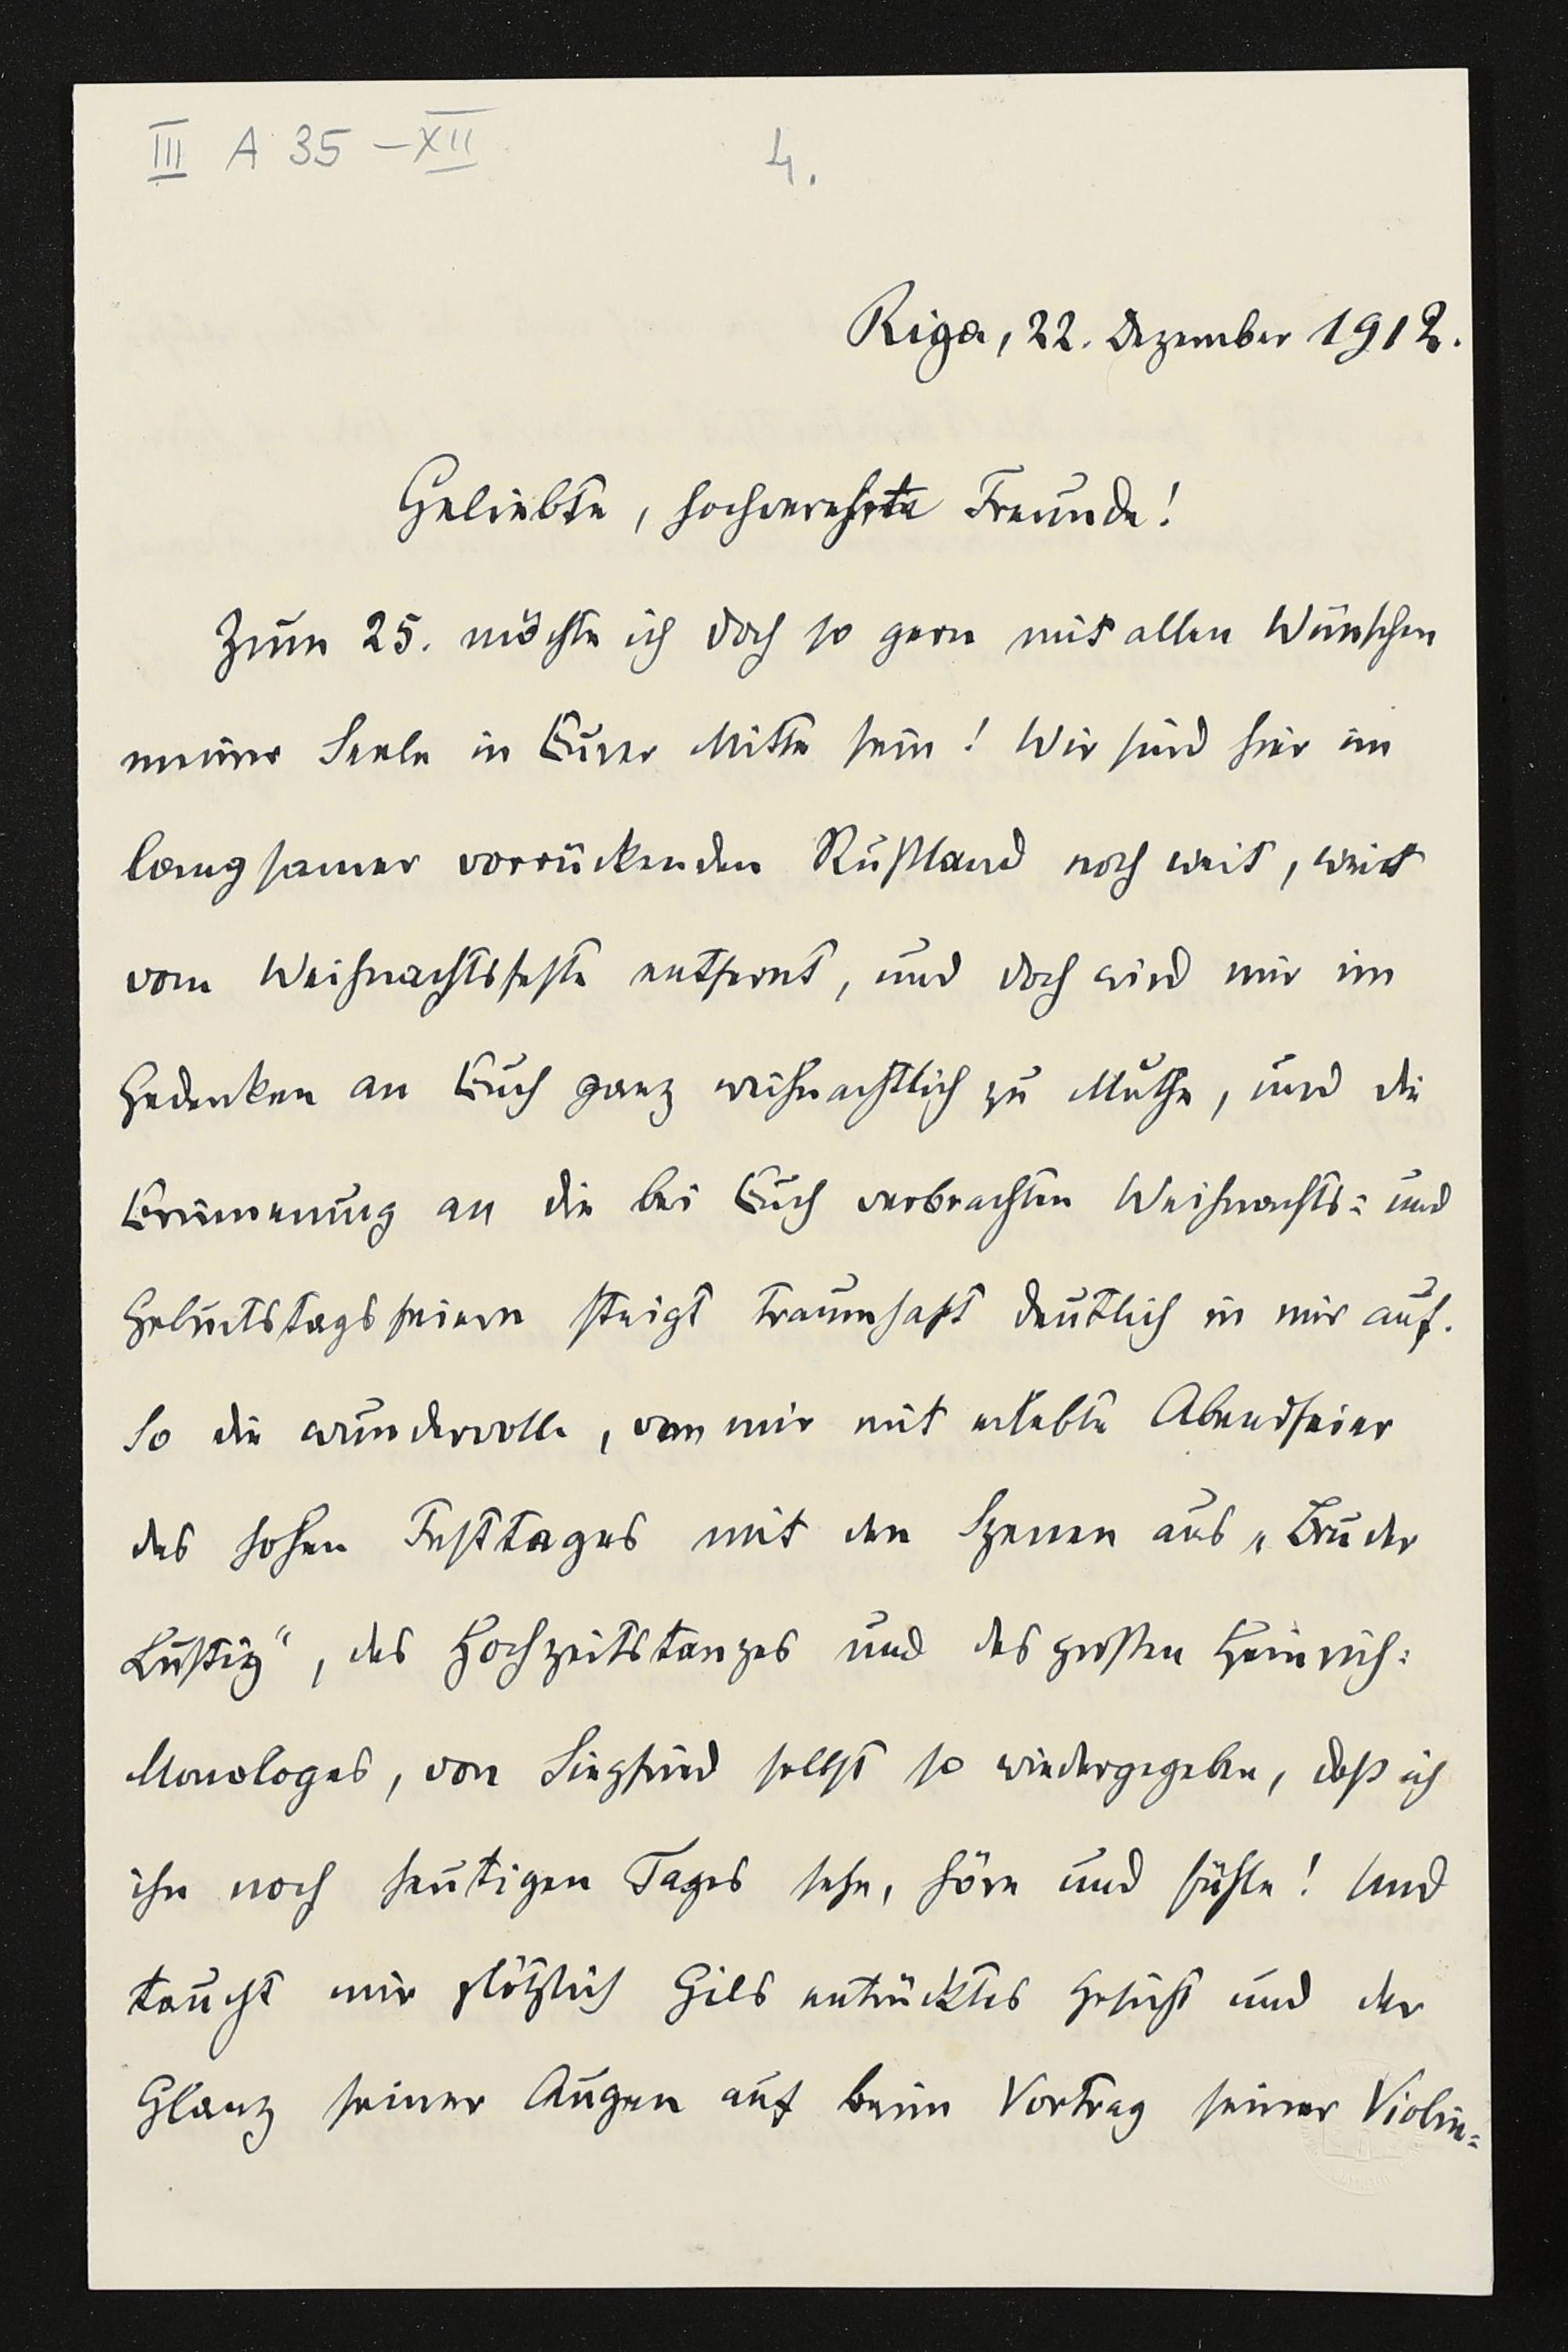 III A 35 – XII
4.
Riga, 22. Dezember 1912.
Geliebte, hochverehrte Freunde!
Zum 25. möchte ich doch so gern mit allen Wünschen
meiner Seele in Eurer Mitte sein! Wir sind hier im
langsamer vorrückenden Rußland noch weit, weit
vom Weihnachtsfeste entfernt, und doch wird mir im
Gedenken an Euch ganz weihnachtlich zu Muthe, und die
Erinnerung an die bei Euch verbrachten Weihnachts= und
Geburtstagsfeiern steigt traumhaft deutlich in mir auf.
So die wundervolle, von mir mit erlebte Abendfeier
des hohen Festtages mit den Szenen aus „Bruder
Lustig“, des Hochzeitstanzes und des großen Heinrich=
Monologes, von Siegfried selbst so wiedergegeben, daß ich
ihn noch heutigen Tages sehe, höre und fühle! Und
taucht mir plötzlich Gils entrücktes Gesicht und der
Glanz seiner Augen auf beim Vortrag seiner Violin=